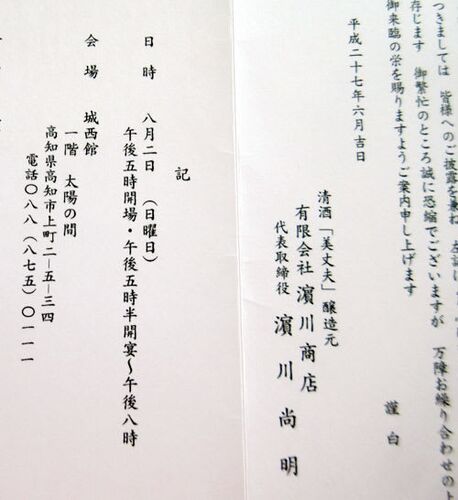 つきましては 皆様へのご披露を兼ね 左記
存じます 御繁忙のところ誠に恐縮でございますが 万障お繰り合わせの上
御来臨の栄を賜りますようご案内申し上げます
謹白
平成二十七年六月吉日
清酒「美丈夫」醸造元
有限会社 濵川商店
代表取締役 濵川尚明
記
日時 八月二日 (日曜日)
午後五時開場・午後五時半開宴~午後八時
会場 城西館
一階 太陽の間
高知県高知市上町二―五―三四
電話〇八八(八七五)〇一一一